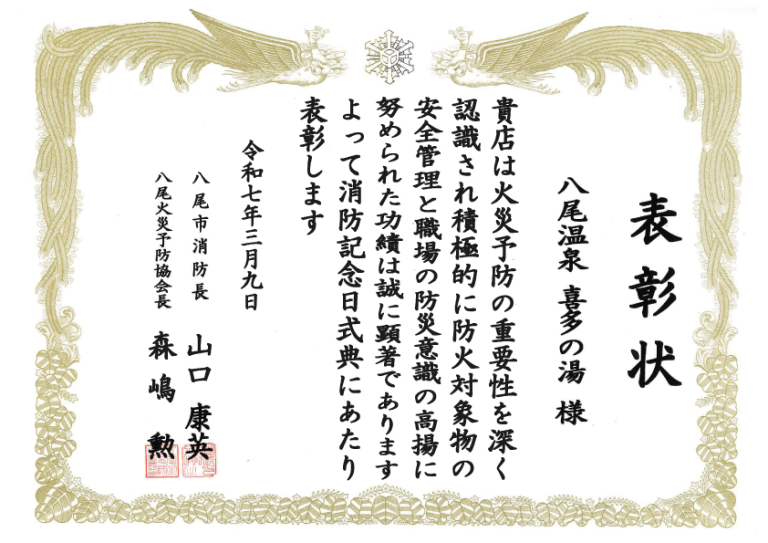 表彰状
八尾温泉 喜多の湯 様
貴店は火災予防の重要性を深く
認識され積極的に防火対象物の
安全管理と職場の防災意識の高揚に
努められた功績は誠に顕著であります
よって消防記念日式典にあたり
表彰します
令和七年三月九日
八尾市消防長 山口 康英
八尾火災予防協会長 森嶋 勲